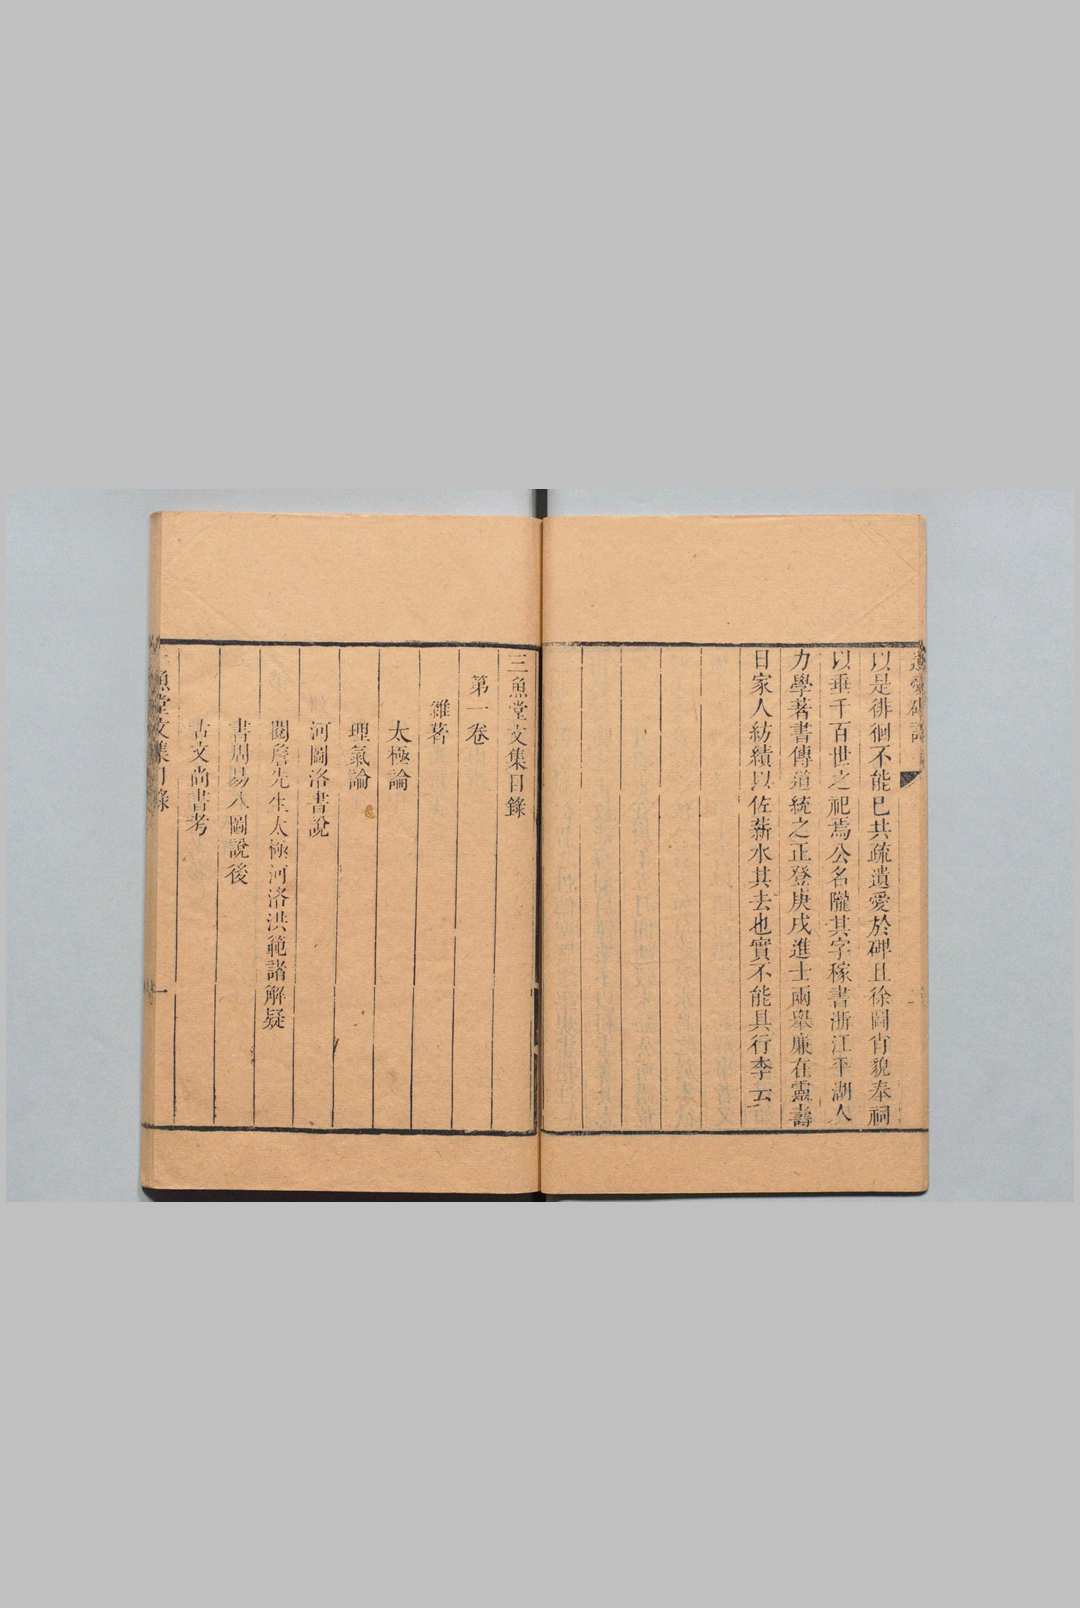 以是徘徊不能已共疏遺愛於碑且徐圖肖貌奉祠
以垂千百世之祀焉公名隴其字稼書浙江平湖人
力學著書傳道統之正登庚戌進士兩舉廉在靈壽
日家人紡績以佐薪水其去也實不能具行李云
三魚堂文集目錄
第一卷
雜著
太極論
理氣論
河圖洛書說
閱詹先生太極河洛洪範諸解疑
書周易八圖說後
古文尚書考
魚堂文集目錄
一